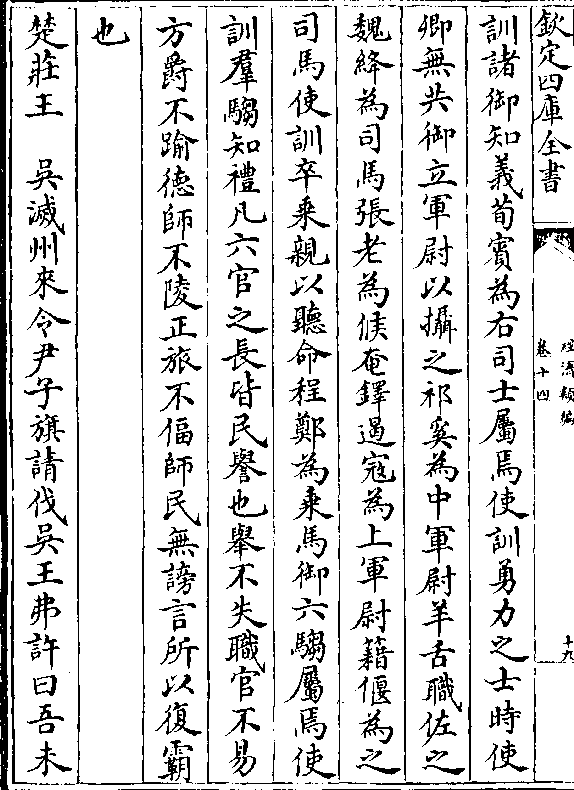 欽定四庫全書
經濟類編
卷十四
十九
訓諸御知義荀賔為右司士屬焉使訓勇力之士時使
卿無共御立軍尉以攝之祁奚為中軍尉羊舌職佐之
魏絳為司馬張老為候奄鐸遏寇為上軍尉籍偃為之
司馬使訓卒乘親以聽命程鄭為乘馬御六騶屬焉使
訓羣騶知禮凡六官之長皆民譽也舉不失職官不易
方爵不踰徳師不陵正旅不偪師民無謗言所以復霸
也
楚莊王　吳滅州來令尹子旗請伐吳王弗許曰吾未